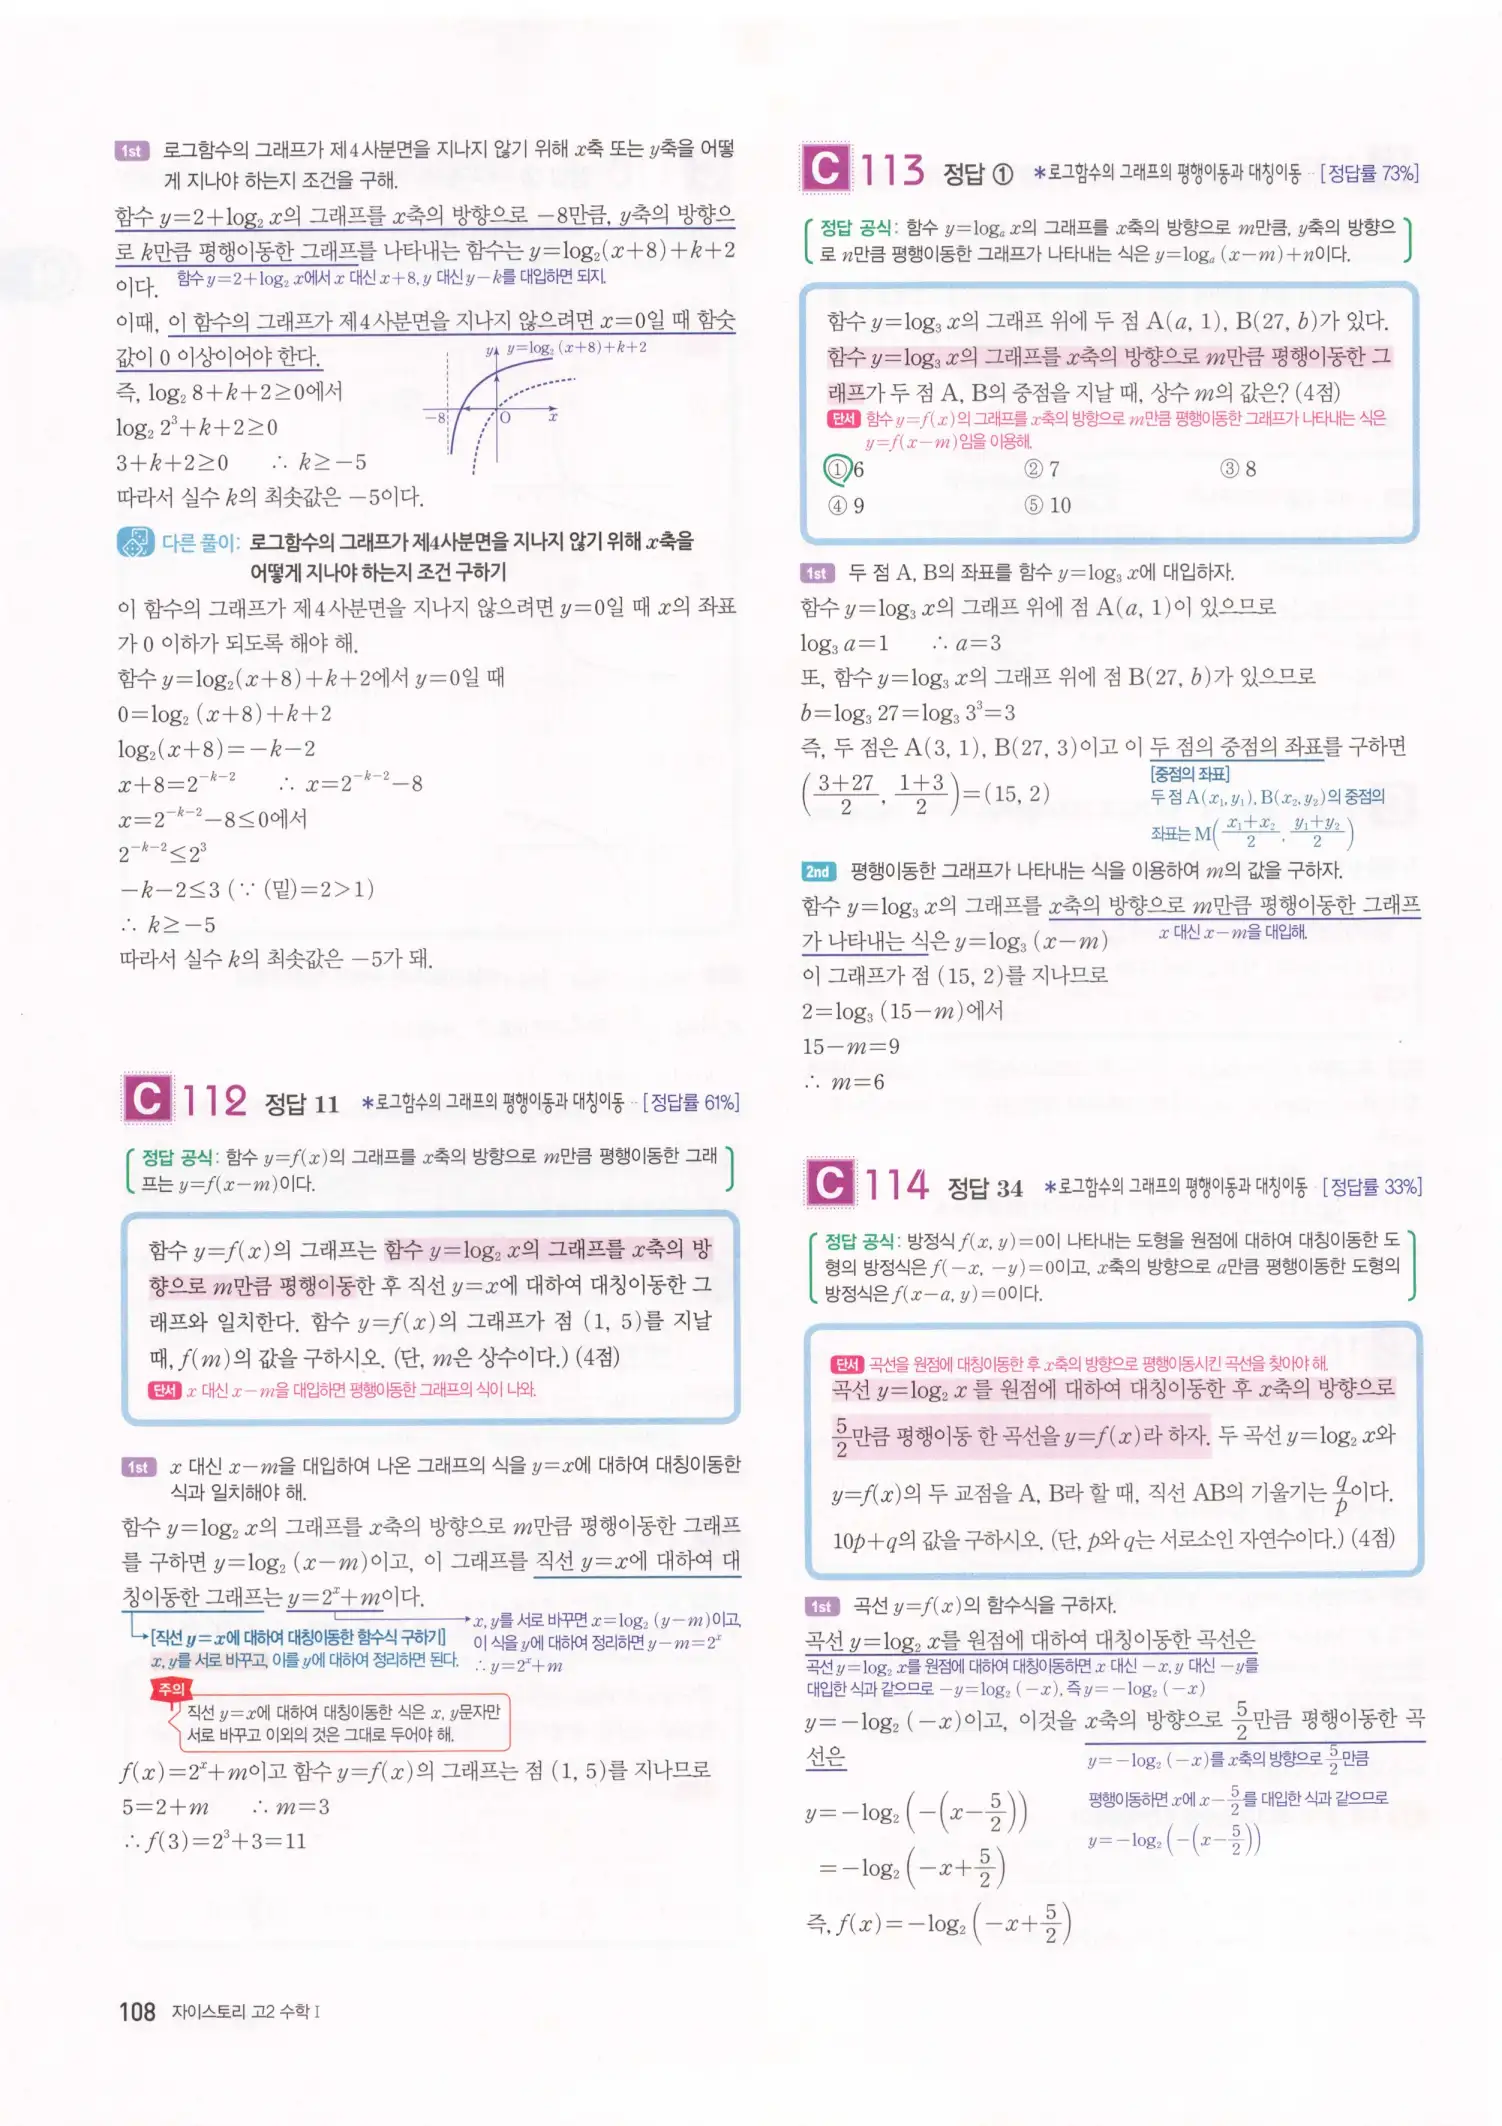 1st 로그함수의 그래프가 제4사분면을 지나지 않기 위해 x축 또는 y축을 어떻
게 지나야 하는지 조건을 구해.
함수 y=2+log₂ x의 그래프를 x축의 방향으로 −8만큼, y축의 방향으
로 k만큼 평행이동한 그래프를 나타내는 함수는 y=log₂(x+8)+k+2
이다. 함수 y=2+log₂ x에서 x 대신 x+8, y 대신 y−k를 대입하면 되지.
이때, 이 함수의 그래프가 제4사분면을 지나지 않으려면 x=0일 때 함숫
값이 0 이상이어야 한다.
즉, log₂ 8+k+2≥0에서
log₂ 2³+k+2≥0
3+k+2≥0 ∴ k≥−5
따라서 실수 k의 최솟값은 −5이다.
y y=log₂ (x+8)+k+2
−8 O x
다른 풀이: 로그함수의 그래프가 제4사분면을 지나지 않기 위해 x축을
어떻게 지나야 하는지 조건 구하기
이 함수의 그래프가 제4사분면을 지나지 않으려면 y=0일 때 x의 좌표
가 0 이하가 되도록 해야 해.
함수 y=log₂(x+8)+k+2에서 y=0일 때
0=log₂ (x+8)+k+2
log₂(x+8)=−k−2
x+8=2^{−k−2} ∴ x=2^{−k−2}−8
x=2^{−k−2}−8≤0에서
2^{−k−2}≤2³
−k−2≤3 (∵ (밑)=2>1)
∴ k≥−5
따라서 실수 k의 최솟값은 −5가 돼.
C 112 정답 11 *로그함수의 그래프의 평행이동과 대칭이동 ·· [정답률 61%]
정답 공식: 함수 y=f(x)의 그래프를 x축의 방향으로 m만큼 평행이동한 그래
프는 y=f(x−m)이다.
함수 y=f(x)의 그래프는 함수 y=log₂ x의 그래프를 x축의 방
향으로 m만큼 평행이동한 후 직선 y=x에 대하여 대칭이동한 그
래프와 일치한다. 함수 y=f(x)의 그래프가 점 (1, 5)를 지날
때, f(m)의 값을 구하시오. (단, m은 상수이다.) (4점)
단서 x 대신 x−m을 대입하면 평행이동한 그래프의 식이 나와.
1st x 대신 x−m을 대입하여 나온 그래프의 식을 y=x에 대하여 대칭이동한
식과 일치해야 해.
함수 y=log₂ x의 그래프를 x축의 방향으로 m만큼 평행이동한 그래프
를 구하면 y=log₂ (x−m)이고, 이 그래프를 직선 y=x에 대하여 대
칭이동한 그래프는 y=2ˣ+m이다.
[직선 y=x에 대하여 대칭이동한 함수식 구하기]
x, y를 서로 바꾸고, 이를 y에 대하여 정리하면 된다.
x, y를 서로 바꾸면 x=log₂ (y−m)이고,
이 식을 y에 대하여 정리하면 y−m=2ˣ
∴ y=2ˣ+m
주의
직선 y=x에 대하여 대칭이동한 식은 x, y문자만
서로 바꾸고 이외의 것은 그대로 두어야 해.
f(x)=2ˣ+m이고 함수 y=f(x)의 그래프는 점 (1, 5)를 지나므로
5=2+m ∴ m=3
∴ f(3)=2³+3=11
108 자이스토리 고2 수학 I
C 113 정답 ① *로그함수의 그래프의 평행이동과 대칭이동 ·· [정답률 73%]
정답 공식: 함수 y=logₐ x의 그래프를 x축의 방향으로 m만큼, y축의 방향으
로 n만큼 평행이동한 그래프가 나타내는 식은 y=logₐ (x−m)+n이다.
함수 y=log₃ x의 그래프 위에 두 점 A(a, 1), B(27, b)가 있다.
함수 y=log₃ x의 그래프를 x축의 방향으로 m만큼 평행이동한 그
래프가 두 점 A, B의 중점을 지날 때, 상수 m의 값은? (4점)
단서 함수 y=f(x)의 그래프를 x축의 방향으로 m만큼 평행이동한 그래프가 나타내는 식은
y=f(x−m)임을 이용해.
① 6 ② 7 ③ 8
④ 9 ⑤ 10
1st 두 점 A, B의 좌표를 함수 y=log₃ x에 대입하자.
함수 y=log₃ x의 그래프 위에 점 A(a, 1)이 있으므로
log₃ a=1 ∴ a=3
또, 함수 y=log₃ x의 그래프 위에 점 B(27, b)가 있으므로
b=log₃ 27=log₃ 3³=3
즉, 두 점은 A(3, 1), B(27, 3)이고 이 두 점의 중점의 좌표를 구하면
((3+27)/2, (1+3)/2)=(15, 2)
[중점의 좌표]
두 점 A(x₁, y₁), B(x₂, y₂)의 중점의
좌표는 M((x₁+x₂)/2, (y₁+y₂)/2)
2nd 평행이동한 그래프가 나타내는 식을 이용하여 m의 값을 구하자.
함수 y=log₃ x의 그래프를 x축의 방향으로 m만큼 평행이동한 그래프
가 나타내는 식은 y=log₃ (x−m) x 대신 x−m을 대입해.
이 그래프가 점 (15, 2)를 지나므로
2=log₃ (15−m)에서
15−m=9
∴ m=6
C 114 정답 34 *로그함수의 그래프의 평행이동과 대칭이동 [정답률 33%]
정답 공식: 방정식 f(x, y)=0이 나타내는 도형을 원점에 대하여 대칭이동한 도
형의 방정식은 f(−x, −y)=0이고, x축의 방향으로 a만큼 평행이동한 도형의
방정식은 f(x−a, y)=0이다.
단서 곡선을 원점에 대칭이동한 후 x축의 방향으로 평행이동시킨 곡선을 찾아야 해.
곡선 y=log₂ x 를 원점에 대하여 대칭이동한 후 x축의 방향으로
5/2만큼 평행이동 한 곡선을 y=f(x)라 하자. 두 곡선 y=log₂ x와
y=f(x)의 두 교점을 A, B라 할 때, 직선 AB의 기울기는 q/p이다.
10p+q의 값을 구하시오. (단, p와 q는 서로소인 자연수이다.) (4점)
1st 곡선 y=f(x)의 함수식을 구하자.
곡선 y=log₂ x를 원점에 대하여 대칭이동한 곡선은
곡선 y=log₂ x를 원점에 대하여 대칭이동하면 x 대신 −x, y 대신 −y를
대입한 식과 같으므로 −y=log₂ (−x), 즉 y=−log₂ (−x)
y=−log₂ (−x)이고, 이것을 x축의 방향으로 5/2만큼 평행이동한 곡
선은
y=−log₂ (−x)를 x축의 방향으로 5/2만큼
평행이동하면 x에 x−5/2를 대입한 식과 같으므로
y=−log₂ (−(x−5/2))
y=−log₂ (−(x−5/2))
=−log₂ (−x+5/2)
즉, f(x)=−log₂ (−x+5/2)